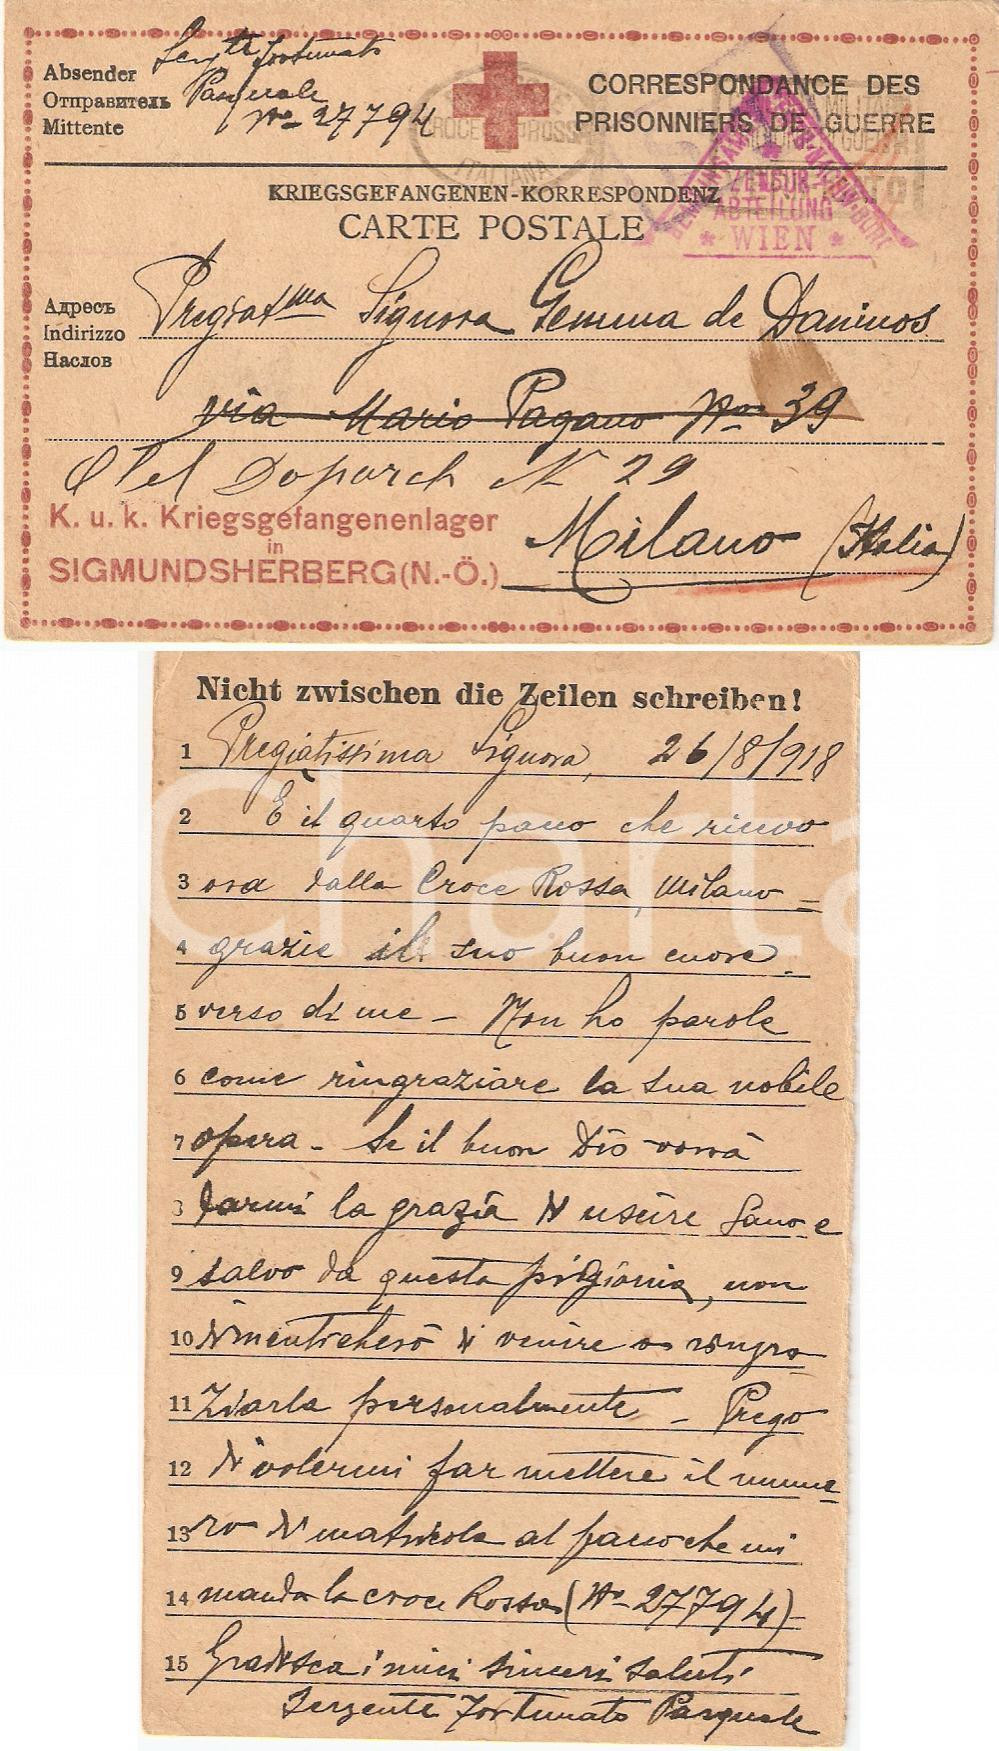 Absender
Отправитель
Mittente
Serg.te Fortunato
Pasquale
No 27794
CROCE ROSSA
ITALIANA
CORRESPONDANCE DES
PRISONNIERS DE GUERRE
KRIEGSGEFANGENEN-KORRESPONDENZ
CARTE POSTALE
ZENSUR-
ABTEILUNG
* WIEN *
Адресъ
Indirizzo
Наслов
Pregiat.ma Signora Gemma de Daninos
via Mario Pagano No 39
N 29
K. u. k. Kriegsgefangenenlager
in
SIGMUNDSHERBERG (N.-Ö.)
Milano (Italia)
Nicht zwischen die Zeilen schreiben!
1 Pregiatissima Signora, 26/8/918
2 È il quarto pacco che ricevo
3 ora dalla Croce Rossa, Milano =
4 grazie il suo buon cuore
5 verso di me - Non ho parole
6 come ringraziare la sua nobile
7 opera - Se il buon Dio vorrà
8 farmi la grazia di uscire sano e
9 salvo da questa prigionia, non
10 dimenticherò di venire a ringra
11 ziarla personalmente - Prego
12 di volermi far mettere il nume
13 ro di matricola al pacco che mi
14 manda la croce Rossa (No 27794)
15 Gradisca i miei sinceri saluti
Sergente Fortunato Pasquale
Charta